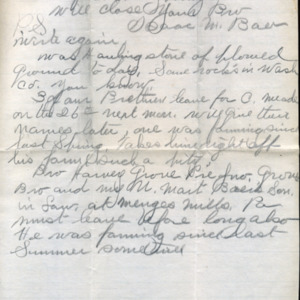 will close Your Bro
Isaac M. Baer
P.S.
write again
was Hauling stone of plowed
ground to day, Some rocks in Wash
Co. you know.
3 of our Brethren leave for C. meade
on the 26th next mon. will give their
names later, one was farming since
last Spring, takes him right off
his farm, such a pity.
Bro Harvey Grove Pre. Jno. Grove
Bro and my N. Mart Baers Son
in Law, at menges mills, Pa
must leave before long also
He was farming since last
Summer some time